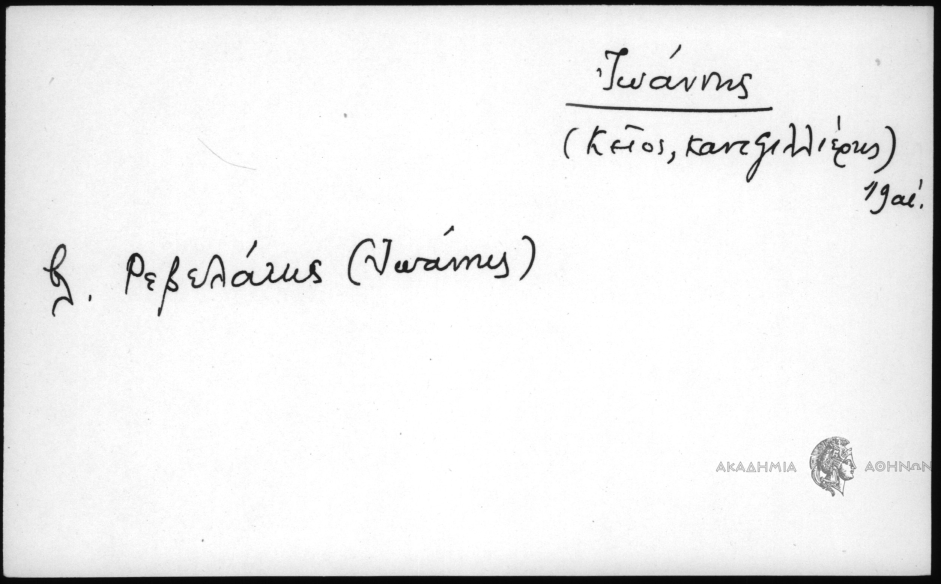 Ἰωάννης
(Κεῖος, καντζιλλιέρης)
19 αἰ.
βλ. Ρεβελάκης (Ἰωάννης)
ΑΚΑΔΗΜΙΑ ΑΘΗΝΩΝ